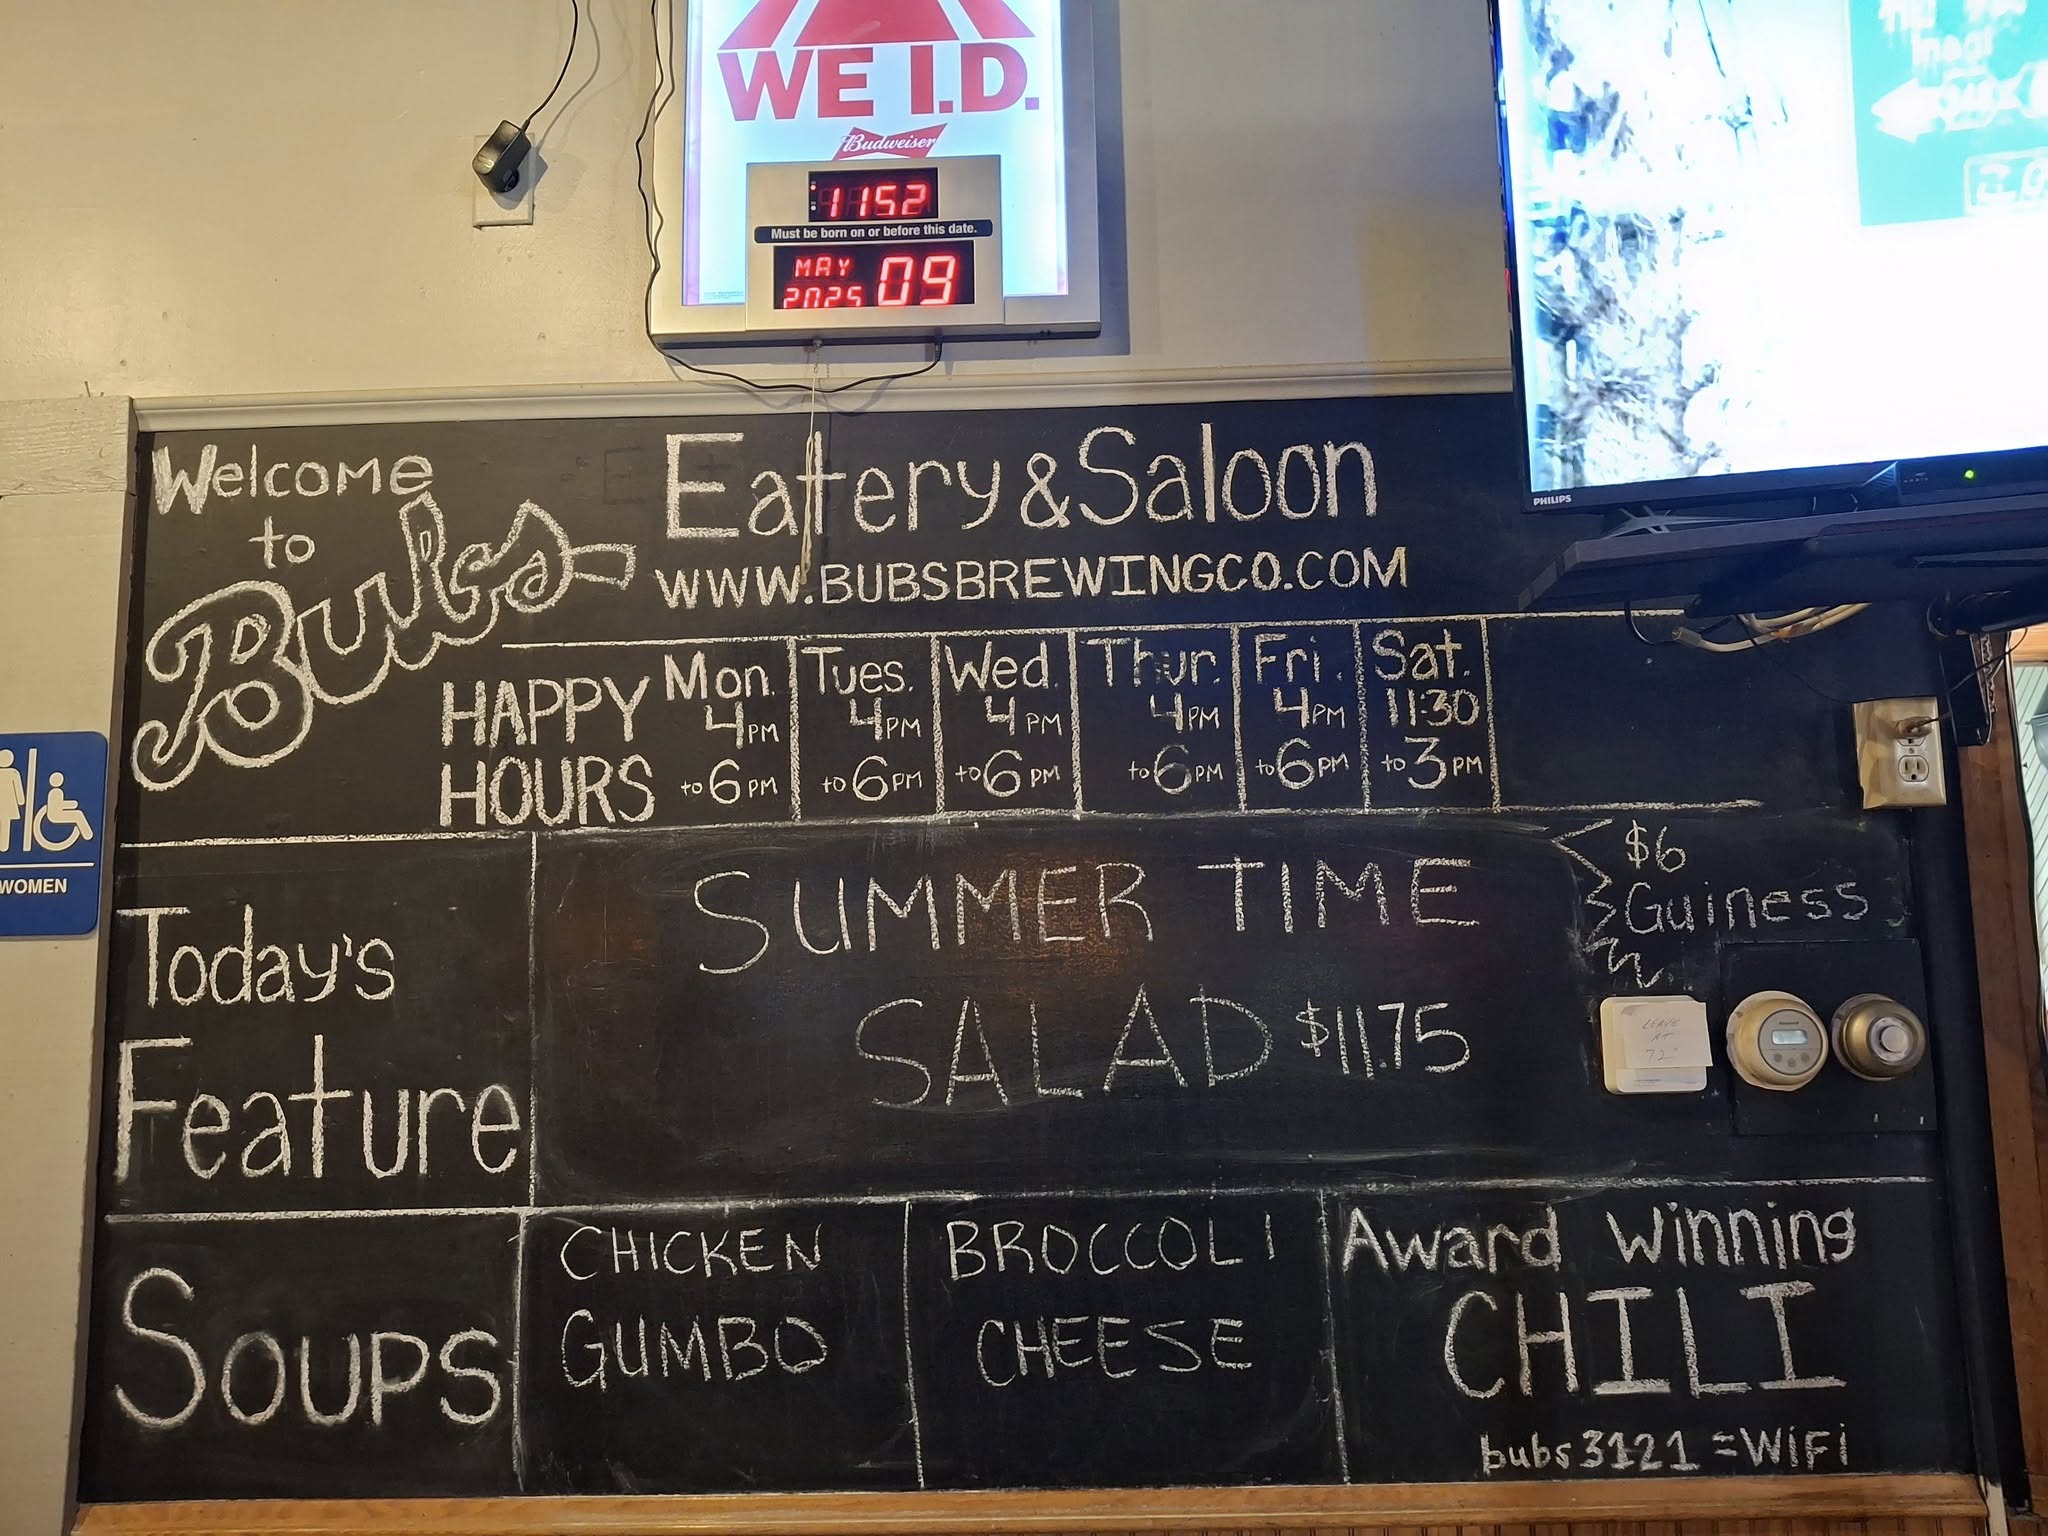 WE I.D.
Budweiser
1152
Must be born on or before this date.
MAY
2025 09
PHILIPS
Welcome
to
Bubs
Eatery & Saloon
WWW.BUBSBREWINGCO.COM
HAPPY
HOURS
Mon.
4PM
to 6PM
Tues.
4PM
to 6PM
Wed.
4PM
to 6PM
Thur.
4PM
to 6PM
Fri.
4PM
to 6PM
Sat.
11:30
to 3PM
WOMEN
Today's
Feature
SUMMER TIME
SALAD $11.75
$6
Guiness
LEAVE
AT
72°
SOUPS
CHICKEN
GUMBO
BROCCOLI
CHEESE
Award Winning
CHILI
bubs3121 = WiFi